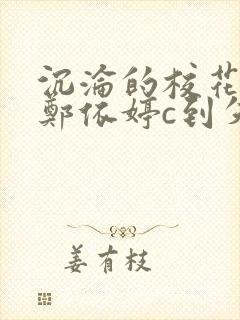 沉沦的校花
鄭依婷c到
姜有枝